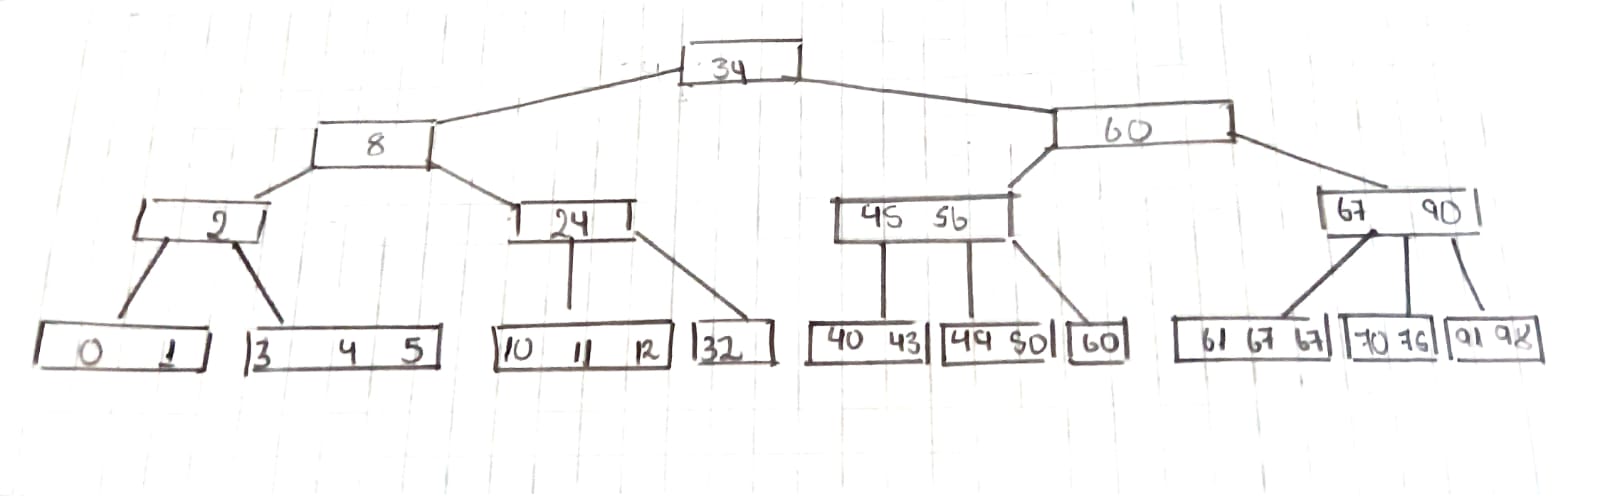 34
8 60
2 24 45 56 67 90
0 1 3 4 5 10 11 12 32 40 43 49 50 60 61 67 67 70 76 91 98